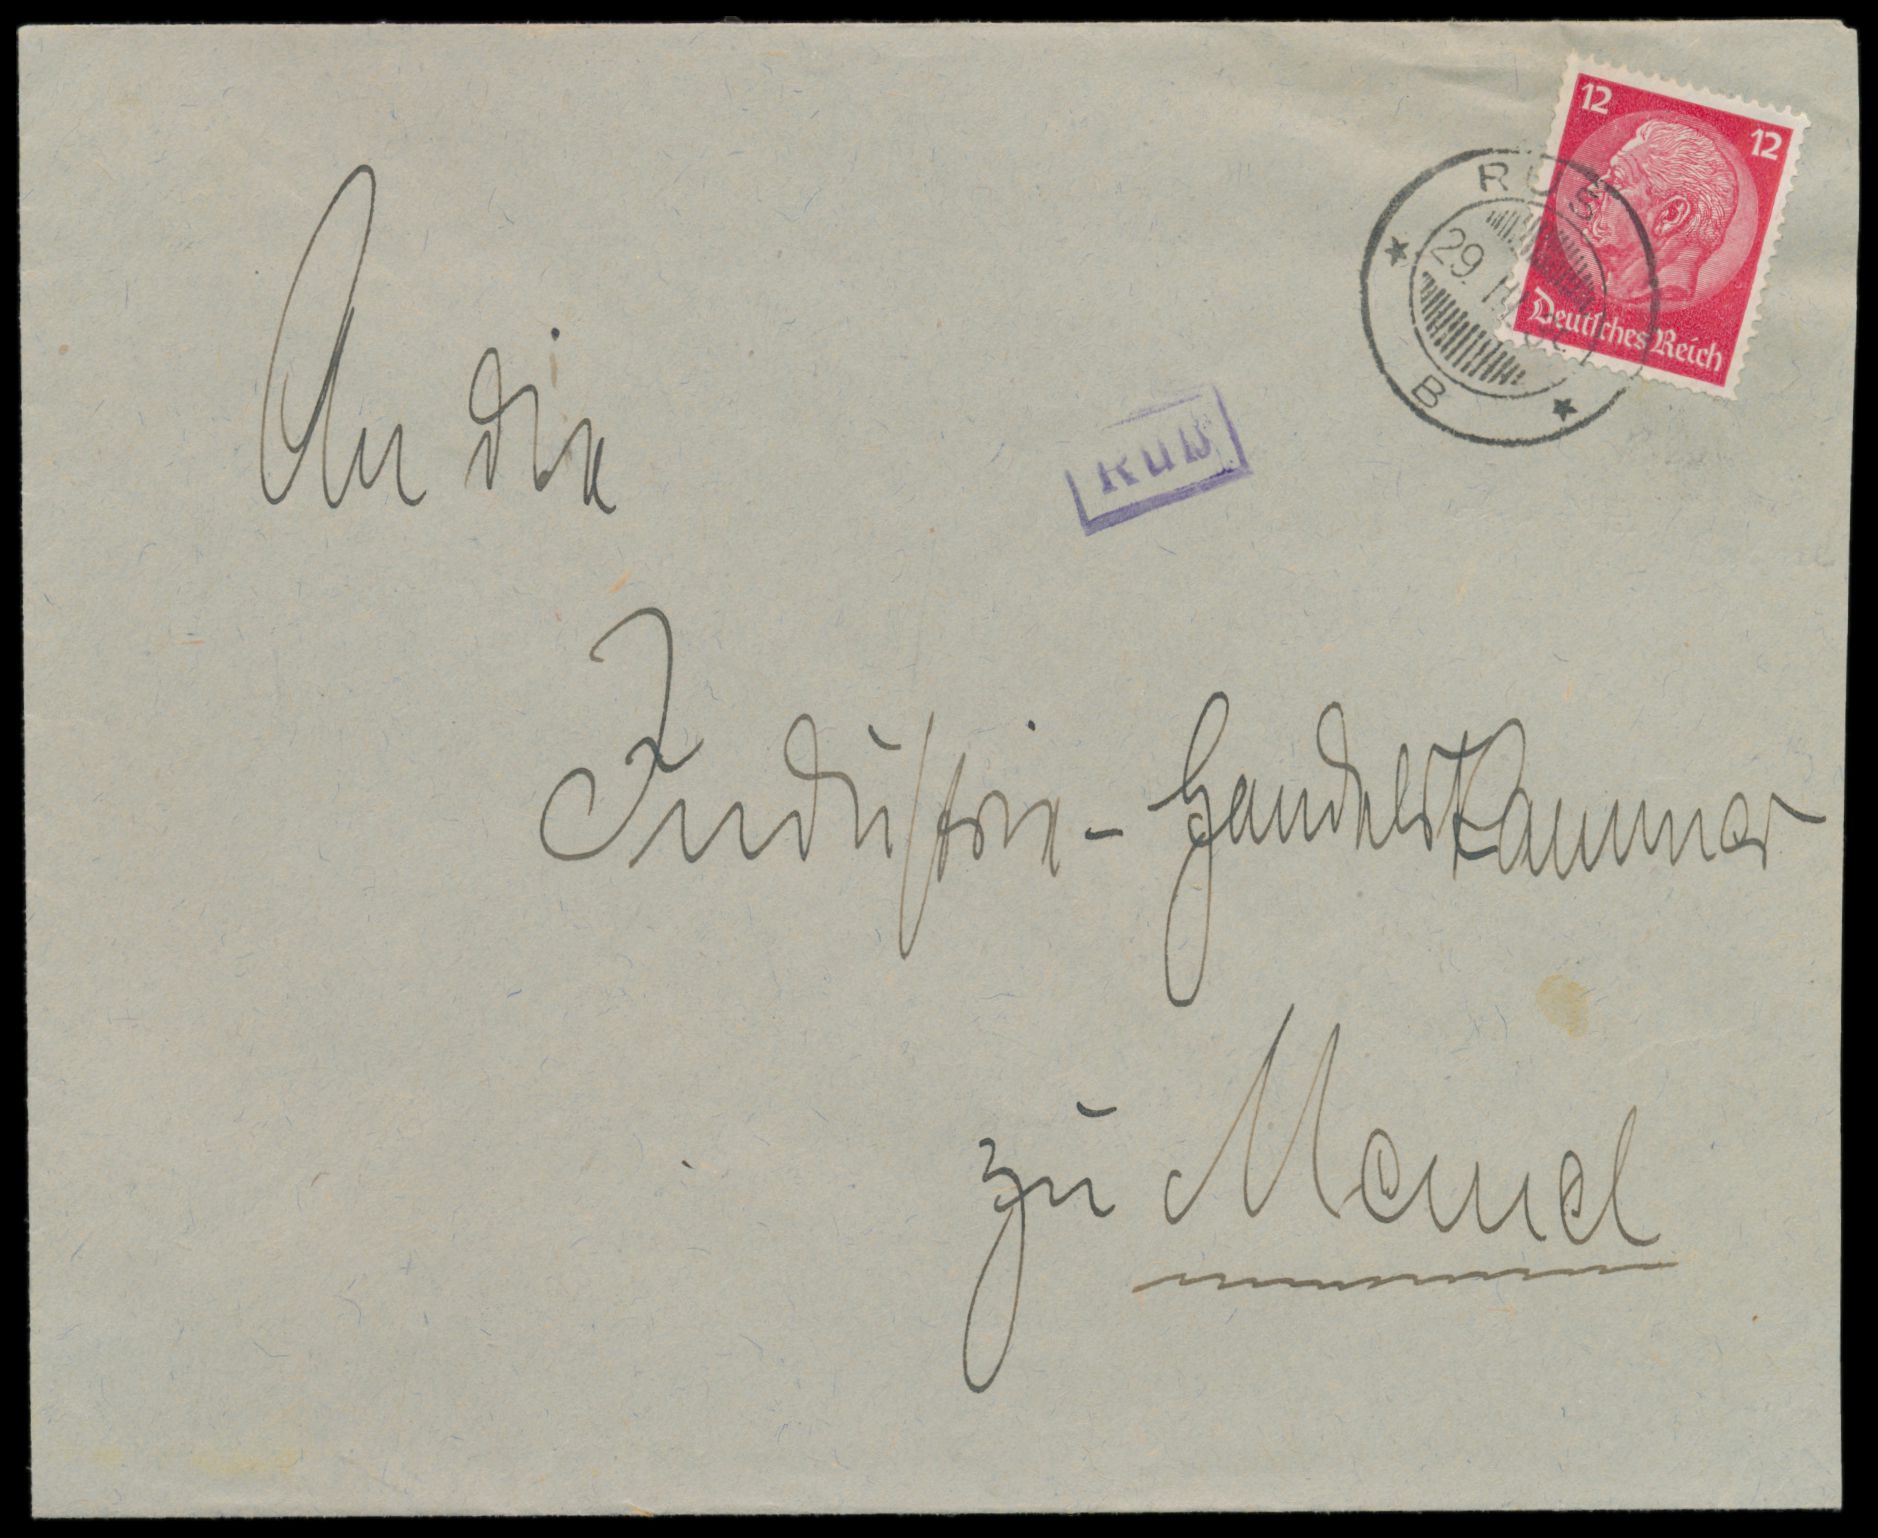 12 12
Deutsches Reich
RUS
29
B
Ruß
An die
Industrie-Handelskammer
zu Memel